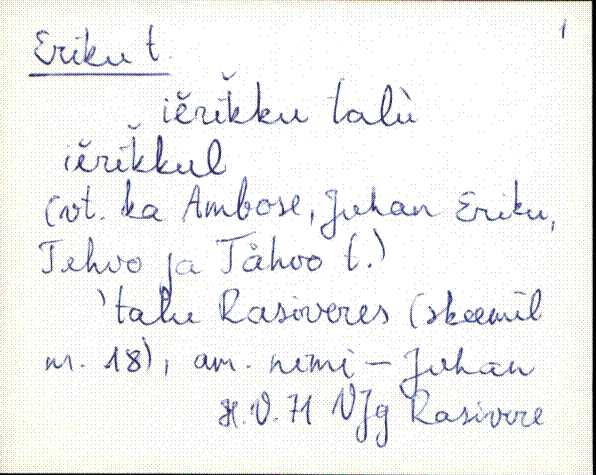 1
Eriku t.
iĕrĭk̆ku talù
iĕrĭk̆kul
(vt. ka Ambose, Juhan Eriku,
Tehvo ja Tåhvo t.)
'talu Rasiveres (skeemil
nr. 18), am. nimi – Juhan
H.V. 71 VJg Rasivere